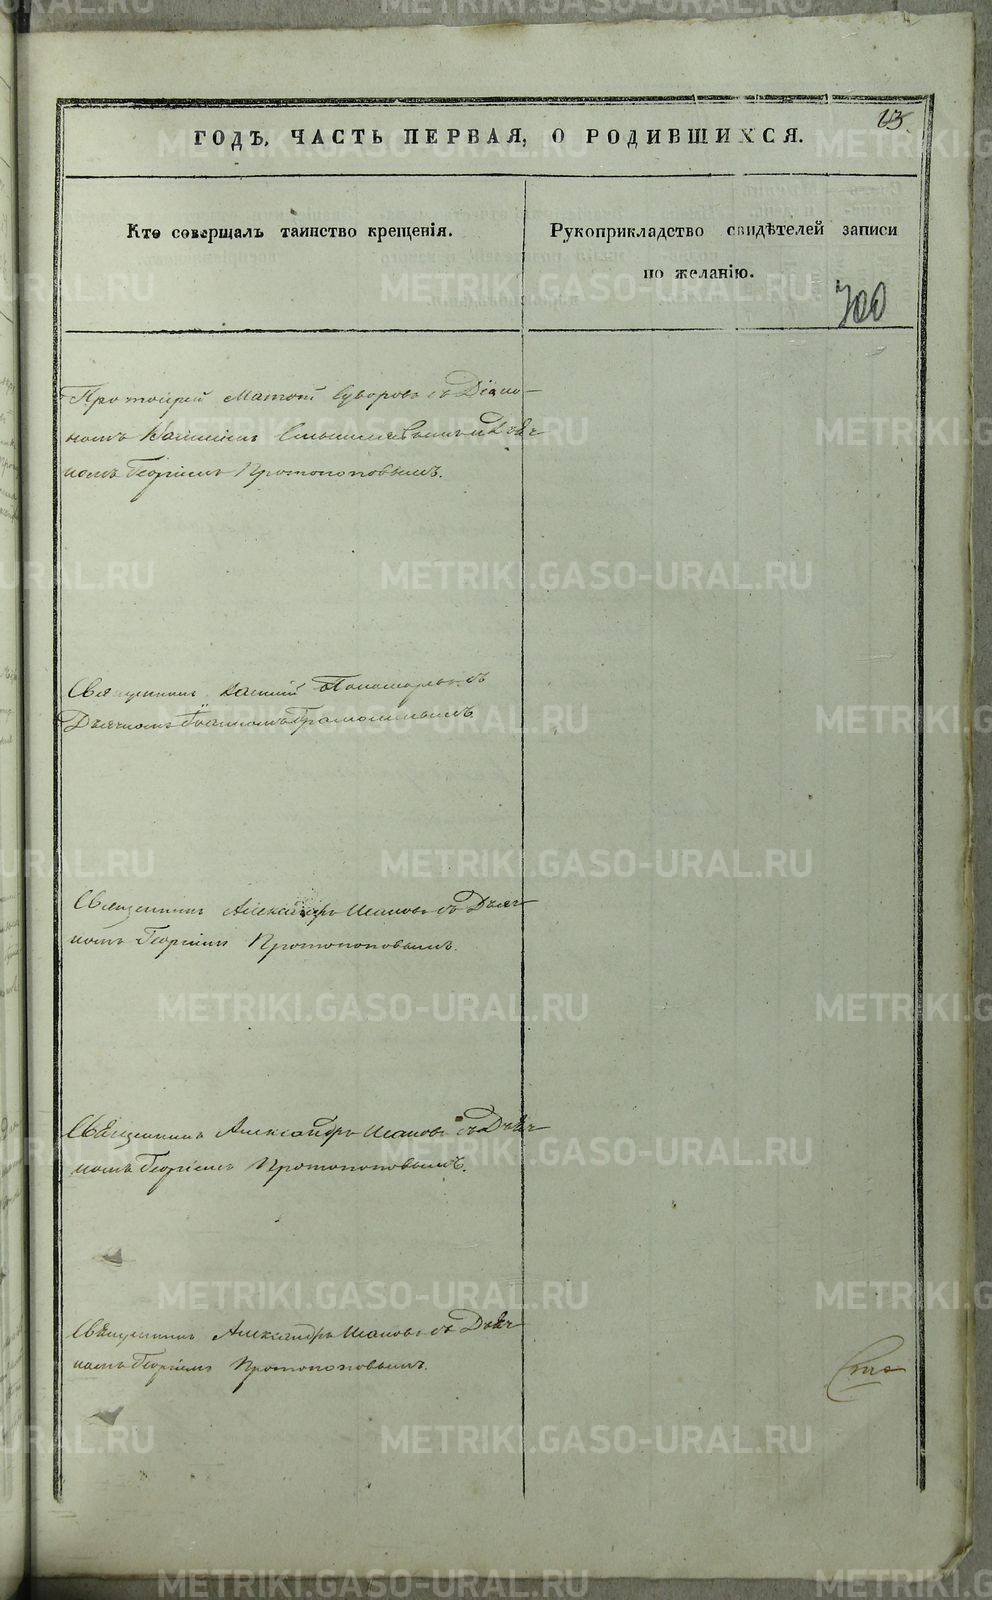 13.
ГОДѢ, ЧАСТЬ ПЕРВАЯ, О РОДИВШИХСЯ.
Кто совершалъ таинство крещенія.
Рукоприкладство свидѣтелей записи
по желанію.
700
Протоіерей Матѳій Суворовъ съ Діако-
номъ и Дьяч
комъ Георгіемъ Протопоповымъ.
Священникъ Пономаревъ съ
Дьячкомъ Іоанномъ
Священникъ Александръ Исаковъ съ Дьяч
комъ Георгіемъ Протопоповымъ.
Священникъ Александръ Исаковъ съ Дьяч
комъ Георгіемъ Протопоповымъ.
Священникъ Александръ Исаковъ съ Дьяч
комъ Георгіемъ Протопоповымъ.
METRIKI.GASO-URAL.RU